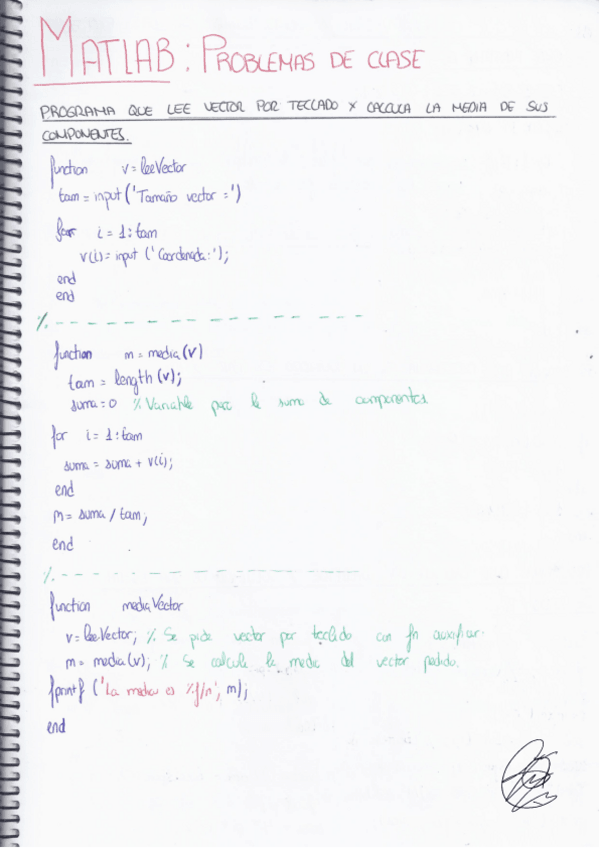 MATLAB: PROBLEMAS DE CLASE
PROGRAMA QUE LEE VECTOR POR TECLADO Y CALCULA LA MEDIA DE SUS
COMPONENTES.
function v=leeVector
tam=input('Tamaño vector =')
for i=1:tam
v(i)=input ('Coordenada:');
end
end
%. - - - - - - - - - - - - - -
function m=media(v)
tam = length(v);
suma=0 % Variable para la suma de componentes
for i=1:tam
suma = suma + v(i);
end
m= suma / tam;
end
%. - - - - - - - - - - - - - -
function mediaVector
v=leeVector; % Se pide vector por teclado con fn auxiliar.
m= media(v); % Se calcula la media del vector pedido.
fprintf ('La media es %f/n', m);
end